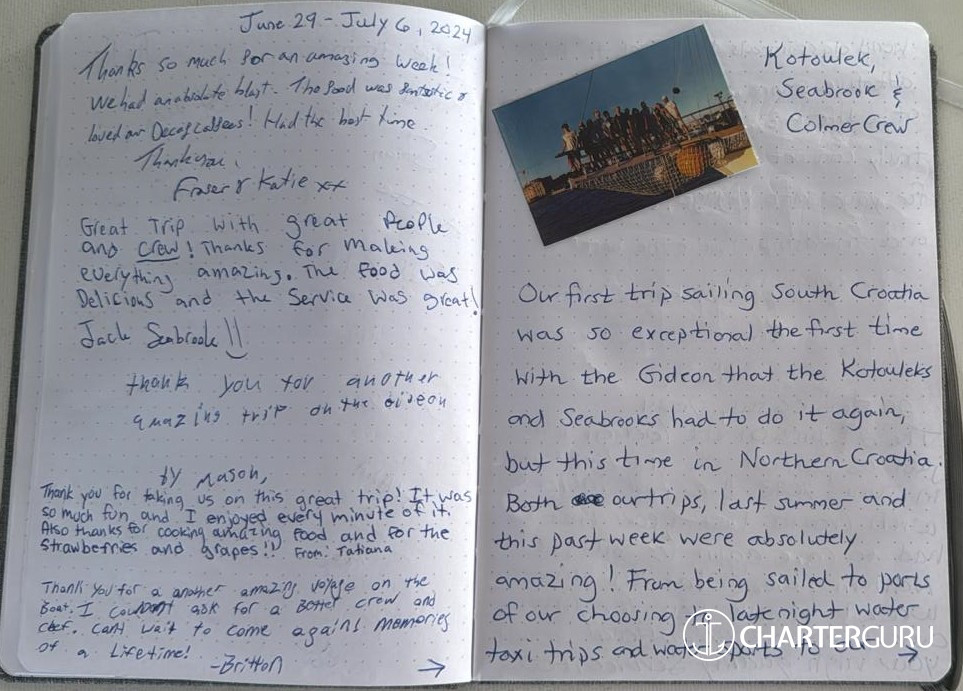 June 29 - July 6, 2024
Thanks so much for an amazing week!
We had an absolute blast. The food was fantastic &
loved our Decaf coffees! Had the best time.
Thank you,
Fraser & Katie xx
Great Trip with great People
and Crew! Thanks for making
everything amazing. The food was
Delicious and the Service was great!
Jack Seabrook
thank you for another
amazing trip on the Gideon
by Mason,
Thank you for taking us on this great trip! It was
so much fun and I enjoyed every minute of it.
Also thanks for cooking amazing food and for the
strawberries and grapes!! From: Tatiana
Thank you for a another amazing voyage on the
Boat. I couldnt ask for a Better crew and
chef. Cant wait to come again! memories
of a Lifetime!
-Britton
→
Kotoulek,
Seabrook &
Colmer Crew
Our first trip sailing South Croatia
was so exceptional the first time
with the Gideon that the Kotouleks
and Seabrooks had to do it again,
but this time in Northern Croatia.
Both our trips, last summer and
this past week were absolutely
amazing! From being sailed to ports
of our choosing to late night water
taxi trips and water sports to
→
CHARTERGURU